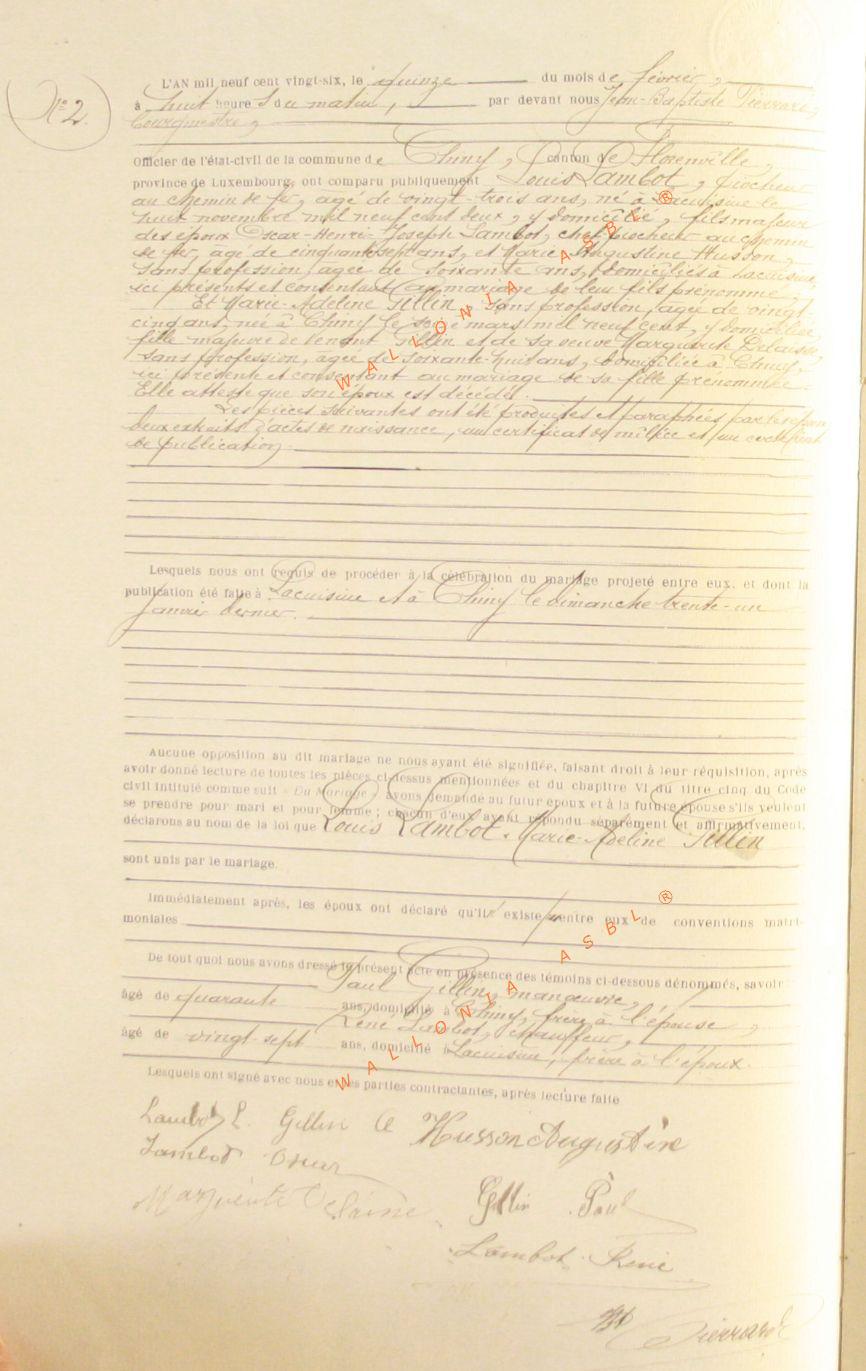 N° 2.
L'AN mil neuf cent vingt-six, le quinze du mois de février,
à huit heures du matin, par devant nous Jean-Baptiste Pierrard,
bourgmestre,
Officier de l'état-civil de la commune de Chiny, canton de Florenville,
province de Luxembourg, ont comparu publiquement Louis Lambot, piocheur
au chemin de fer, agé de vingt-trois ans, né à Lacuisine le
huit novembre mil neuf cent deux, y domicilié, fils majeur
des époux Oscar-Henri-Joseph Lambot, chef-piocheur au chemin
de fer, agé de cinquante-sept ans, et Marie Augustine Husson,
sans profession, agée de soixante ans, domiciliés à Lacuisine,
ici présents et consentant au mariage de leur fils prénommé,
Et Marie-Adeline Gillin, sans profession, agée de vingt
cinq ans, née à Chiny le mars mil neuf cent, y domiciliée
fille majeure de Gillin et de sa veuve Marguerite
sans profession, agée de soixante-huit ans, domiciliée à Chiny,
ici présente et consentant au mariage de sa fille prénommée.
Elle atteste que son époux est décédé.
Les pièces suivantes ont été produites et paraphées par les
deux extraits d'actes de naissance, un certificat de milice et un certificat
de publication.
Lesquels nous ont requis de procéder à la célébration du mariage projeté entre eux, et dont la
publication été faite à Lacuisine et à Chiny le dimanche trente-un
janvier dernier.
Aucune opposition au dit mariage ne nous ayant été signifiée, faisant droit à leur réquisition, après
avoir donné lecture de toutes les pièces ci-dessus mentionnées et du chapitre VI du titre cinq du Code
civil intitulé comme suit « Du Mariage » avons demandé au futur époux et à la future épouse s'ils veulent
se prendre pour mari et pour femme ; chacun d'eux ayant répondu séparément et affirmativement,
déclarons au nom de la loi que Louis Lambot, Marie-Adeline Gillin
sont unis par le mariage.
Immédiatement après, les époux ont déclaré qu'il existe entre eux de conventions matri-
moniales
De tout quoi nous avons dressé le présent acte en présence des témoins ci-dessous dénommés, savoir
Paul Gillin, manœuvre,
âgé de quarante ans, domicilié à Chiny, frère à l'épouse,
René Lambot, chauffeur,
âgé de vingt-sept ans, domicilié à Lacuisine, frère à l'époux.
Lesquels ont signé avec nous et les parties contractantes, après lecture faite
Lambot L. Gillin A Husson Augustine
Lambot Oscar
Marguerite Gillin Paul
Lambot René
Pierrard
WALLONIA ASBL ®
WALLONIA ASBL ®